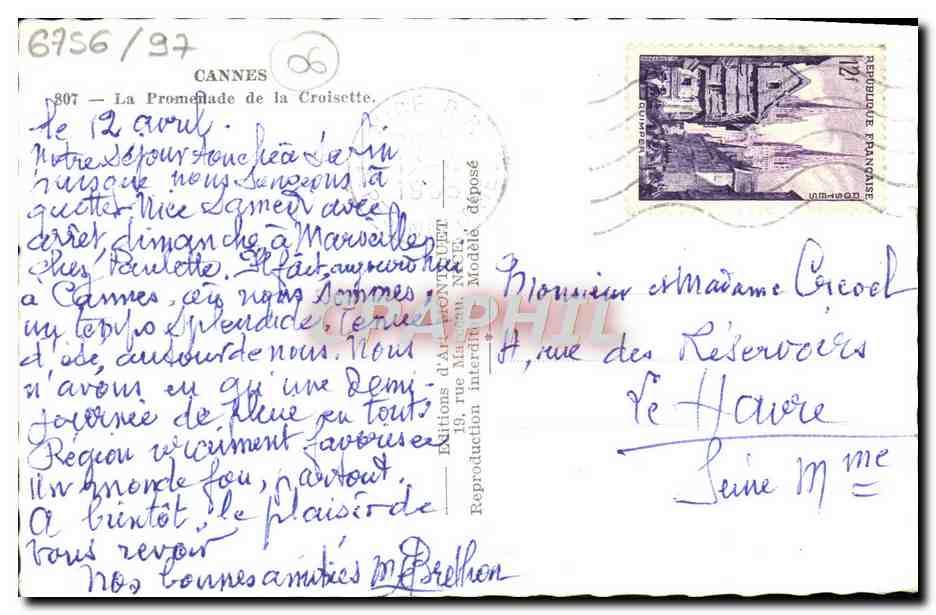 6756/97
06
CANNES
307 — La Promenade de la Croisette.
le 12 avril.
Notre séjour touche à sa fin
puisque nous songeons à
quitter Nice samedi avec
arrêt, dimanche, à Marseille,
chez Paulette. Il fait, aujourd'hui
à Cannes, où nous sommes,
un temps splendide. Tenue
d'été, autour de nous. Nous
n'avons eu qu'une demi-
journée de pluie en tout.
Région vraiment favorisée
Un monde fou, partout.
A bientôt, le plaisir de
vous revoir
Nos bonnes amitiés Brethon
Editions d'Art MONTLUET
19, rue Marceau, NICE
Reproduction interdite Modèle déposé
REPUBLIQUE FRANÇAISE
POSTES
12F
QUIMPER
Monsieur et Madame
4, rue des Réservoirs
Le Havre
Seine Mme
CPAPHIL